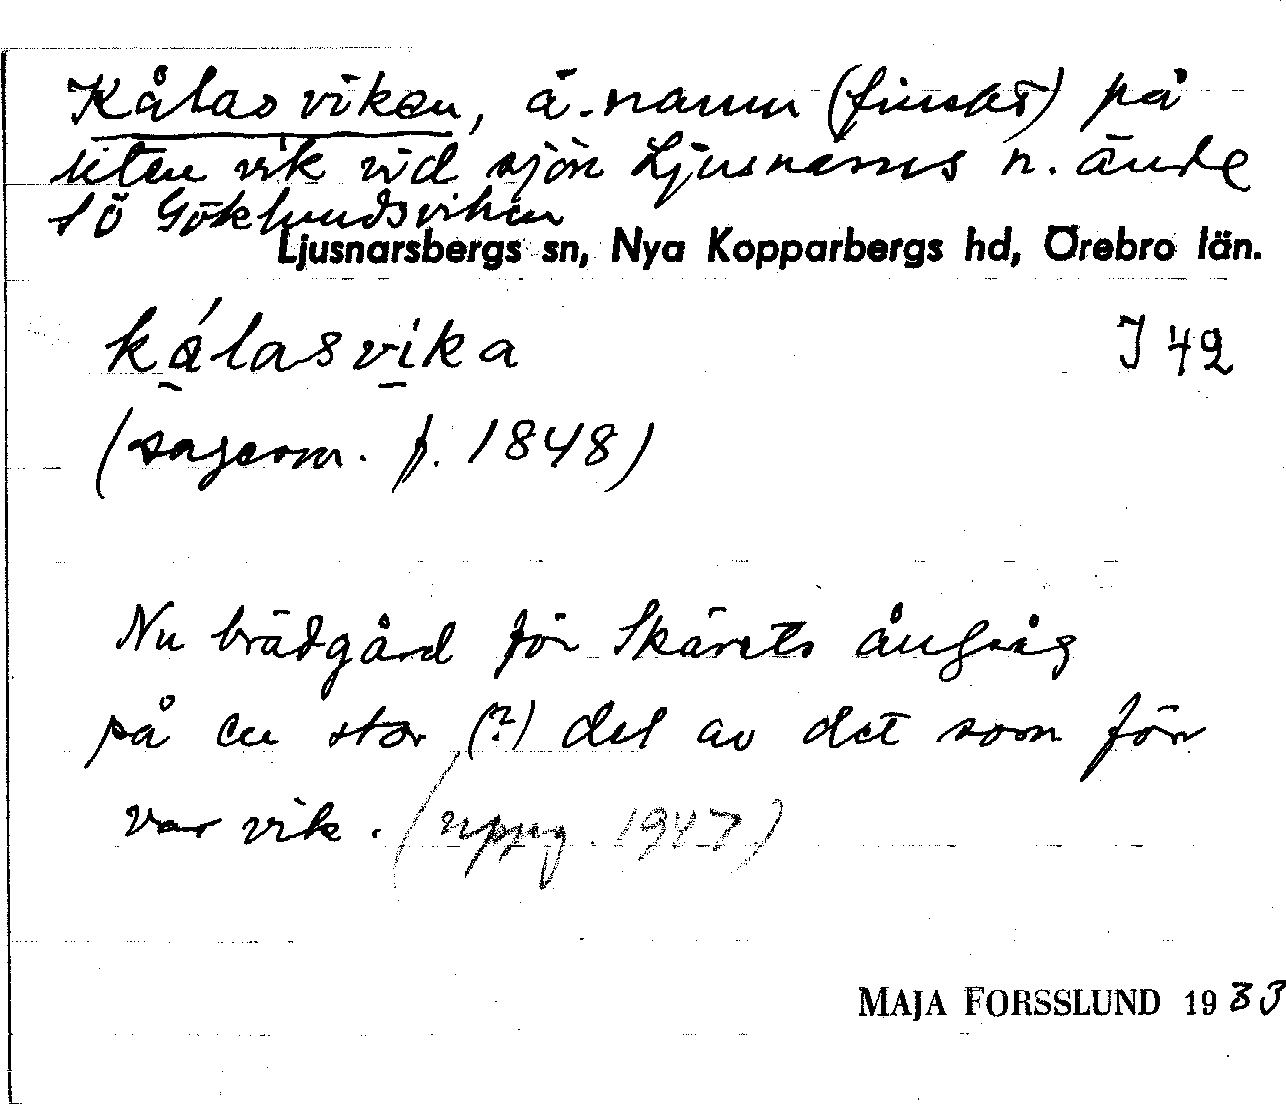 Kålasviken, ä.namn (finskt) på
liten vik vid sjön Ljusnarns n. ände
SÖ Göklundsviken
Ljusnarsbergs sn, Nya Kopparbergs hd, Örebro län.
kálasvika J 42
(sagesm. f. 1848)
Nu brädgård för Skärets ångsåg
på en stor (?) del av det som förr
var vik. (uppg. 1947)
MAJA FORSSLUND 1933